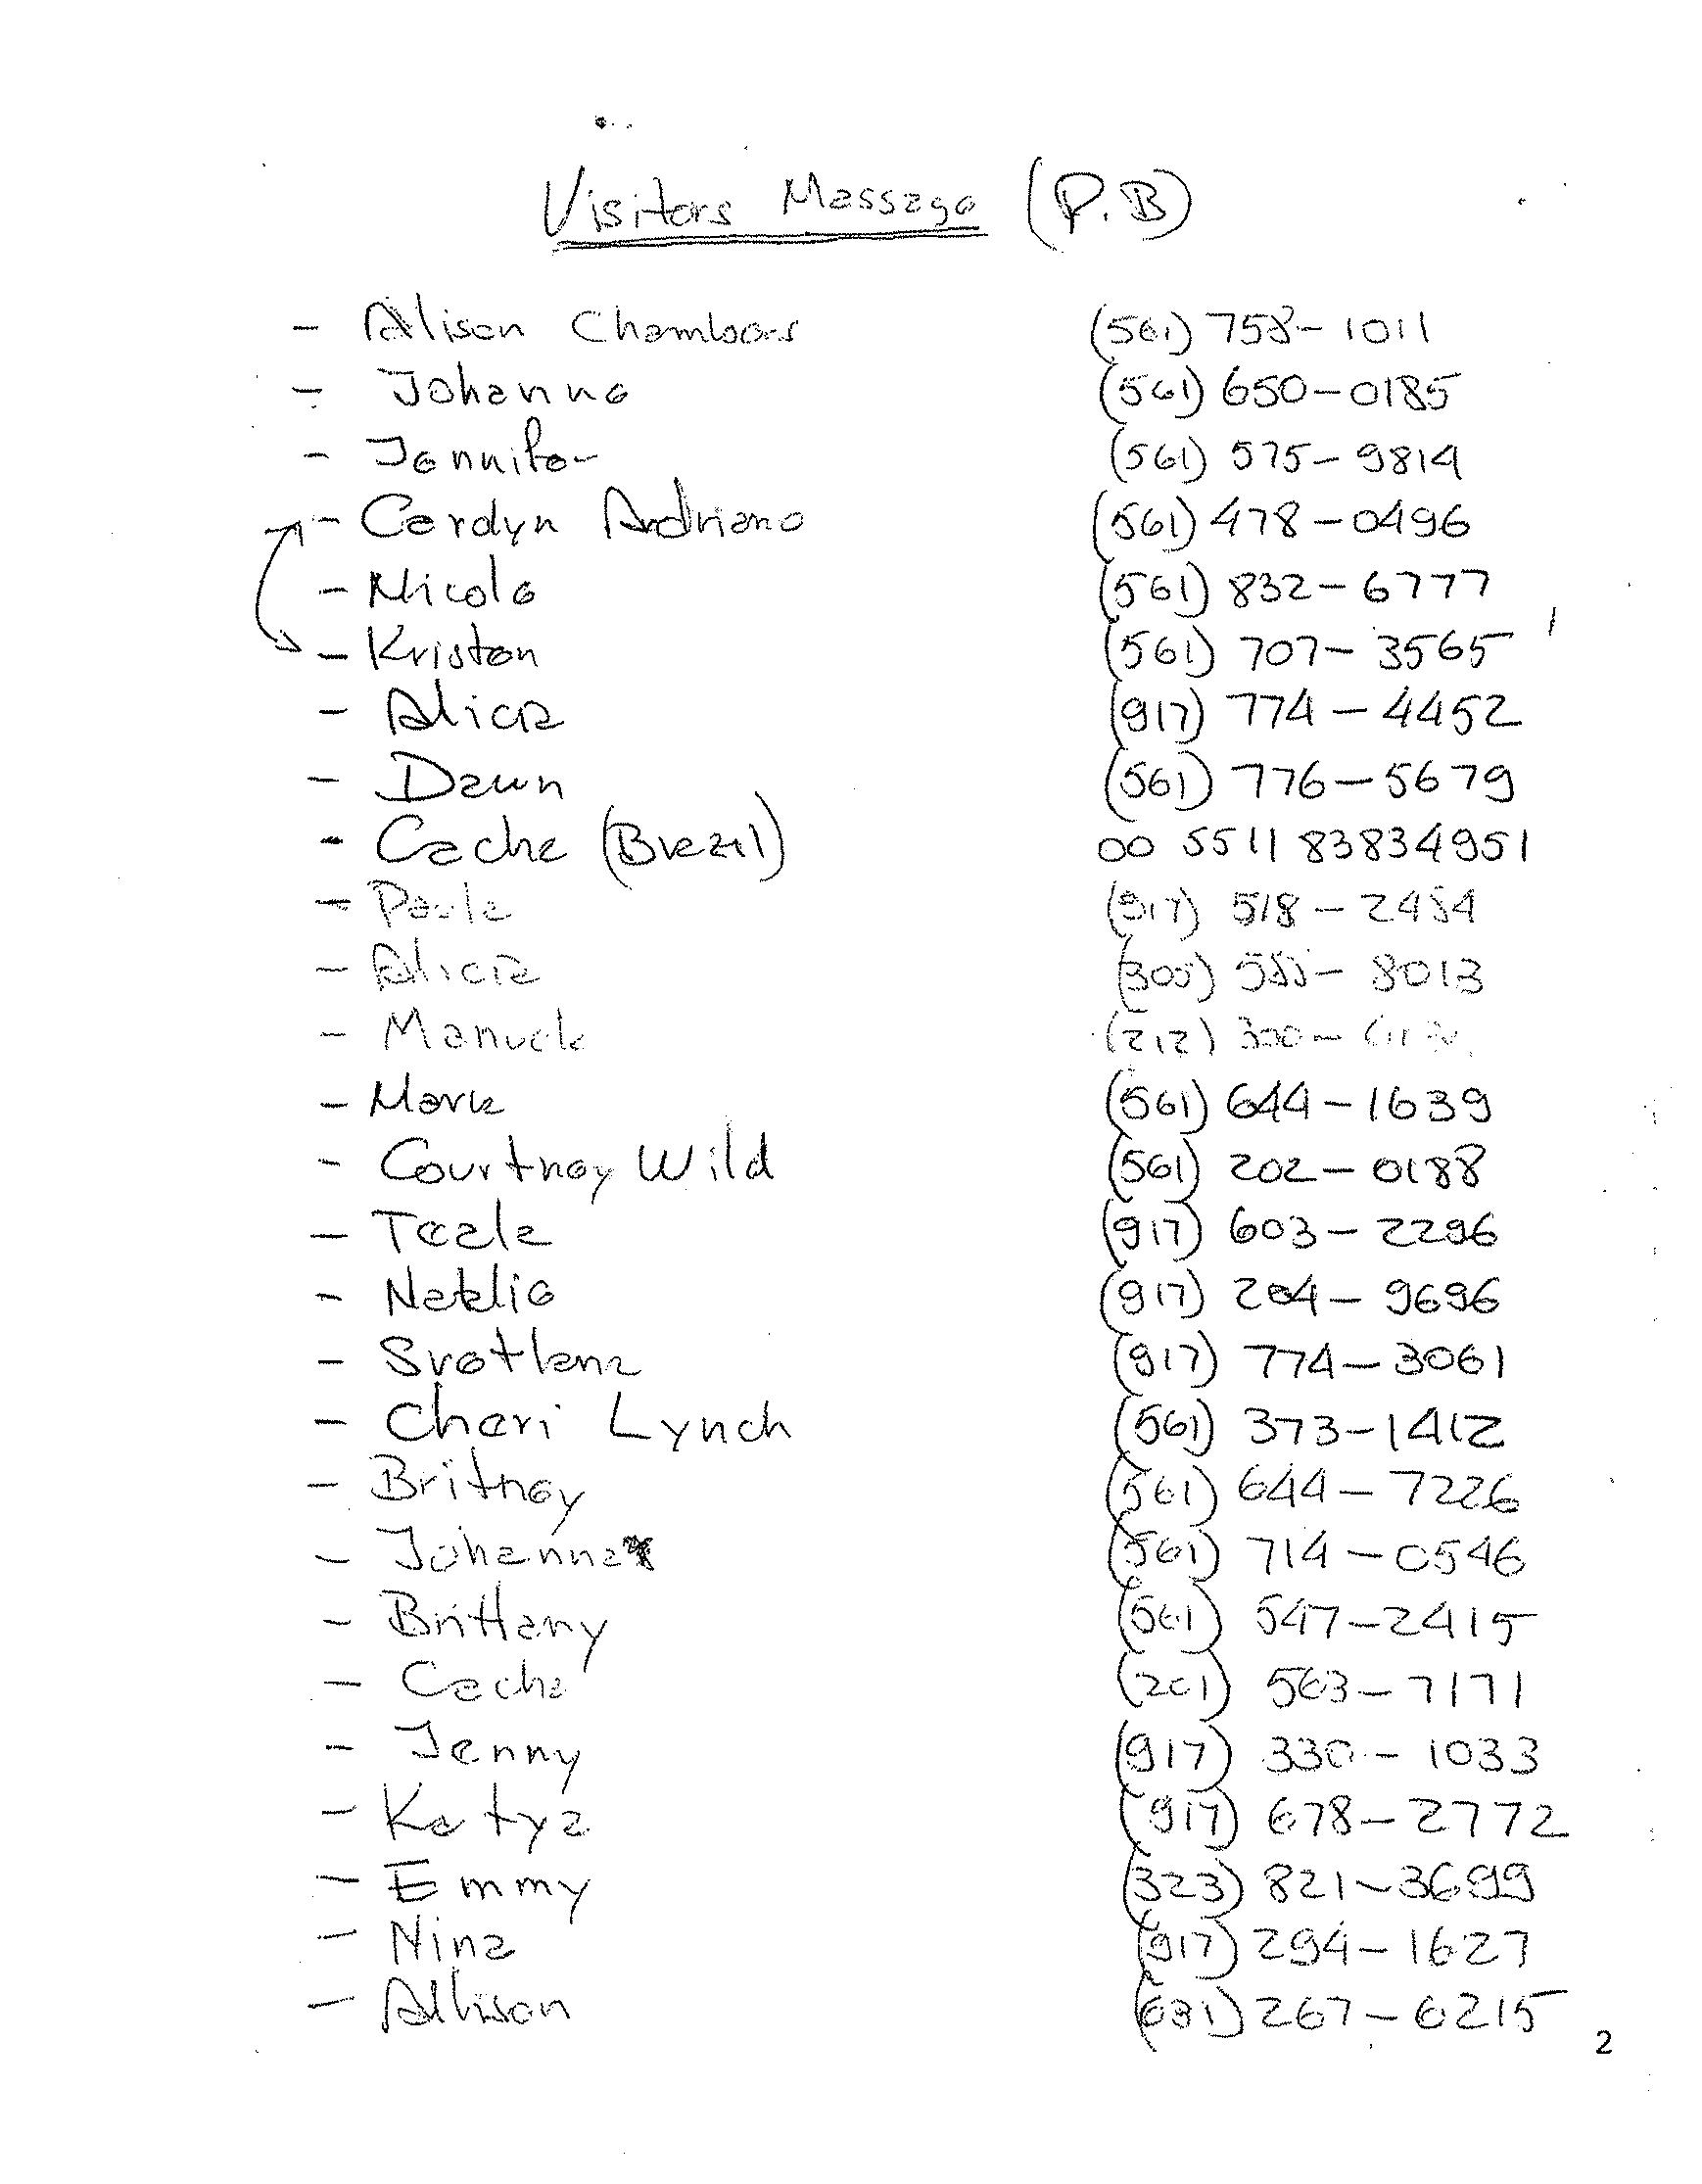 Visitors Massage (P.B)
- Alison Chambers (561) 758-1011
- Johanna (561) 650-0185
- Jennifer (561) 575-9814
- Carolyn Andriano (561) 478-0496
- Nicole (561) 832-6777
- Kristen (561) 707-3565
- Alicia (917) 774-4452
- Dawn (561) 776-5679
- Cacha (Brazil) 00 5511 83834951
- Paula (917) 518-
- Alicia (305) 8013
- (212)
- Mark (561) 644-1639
- Courtney Wild (561) 202-0188
- Teala (917) 603-2296
- Natalie (917) 204-9696
- Svetlana (917) 774-3061
- Cheri Lynch (561) 373-1412
- Britney (561) 644-7226
- Johanna (561) 714-0546
- Brittany (561) 547-2415
- Cacha (201) 563-7171
- Jenny (917) 330-1033
- Katya (917) 678-2772
- Emmy (323) 821-3699
- Nina (917) 294-1627
- Allison (631) 267-6215
2